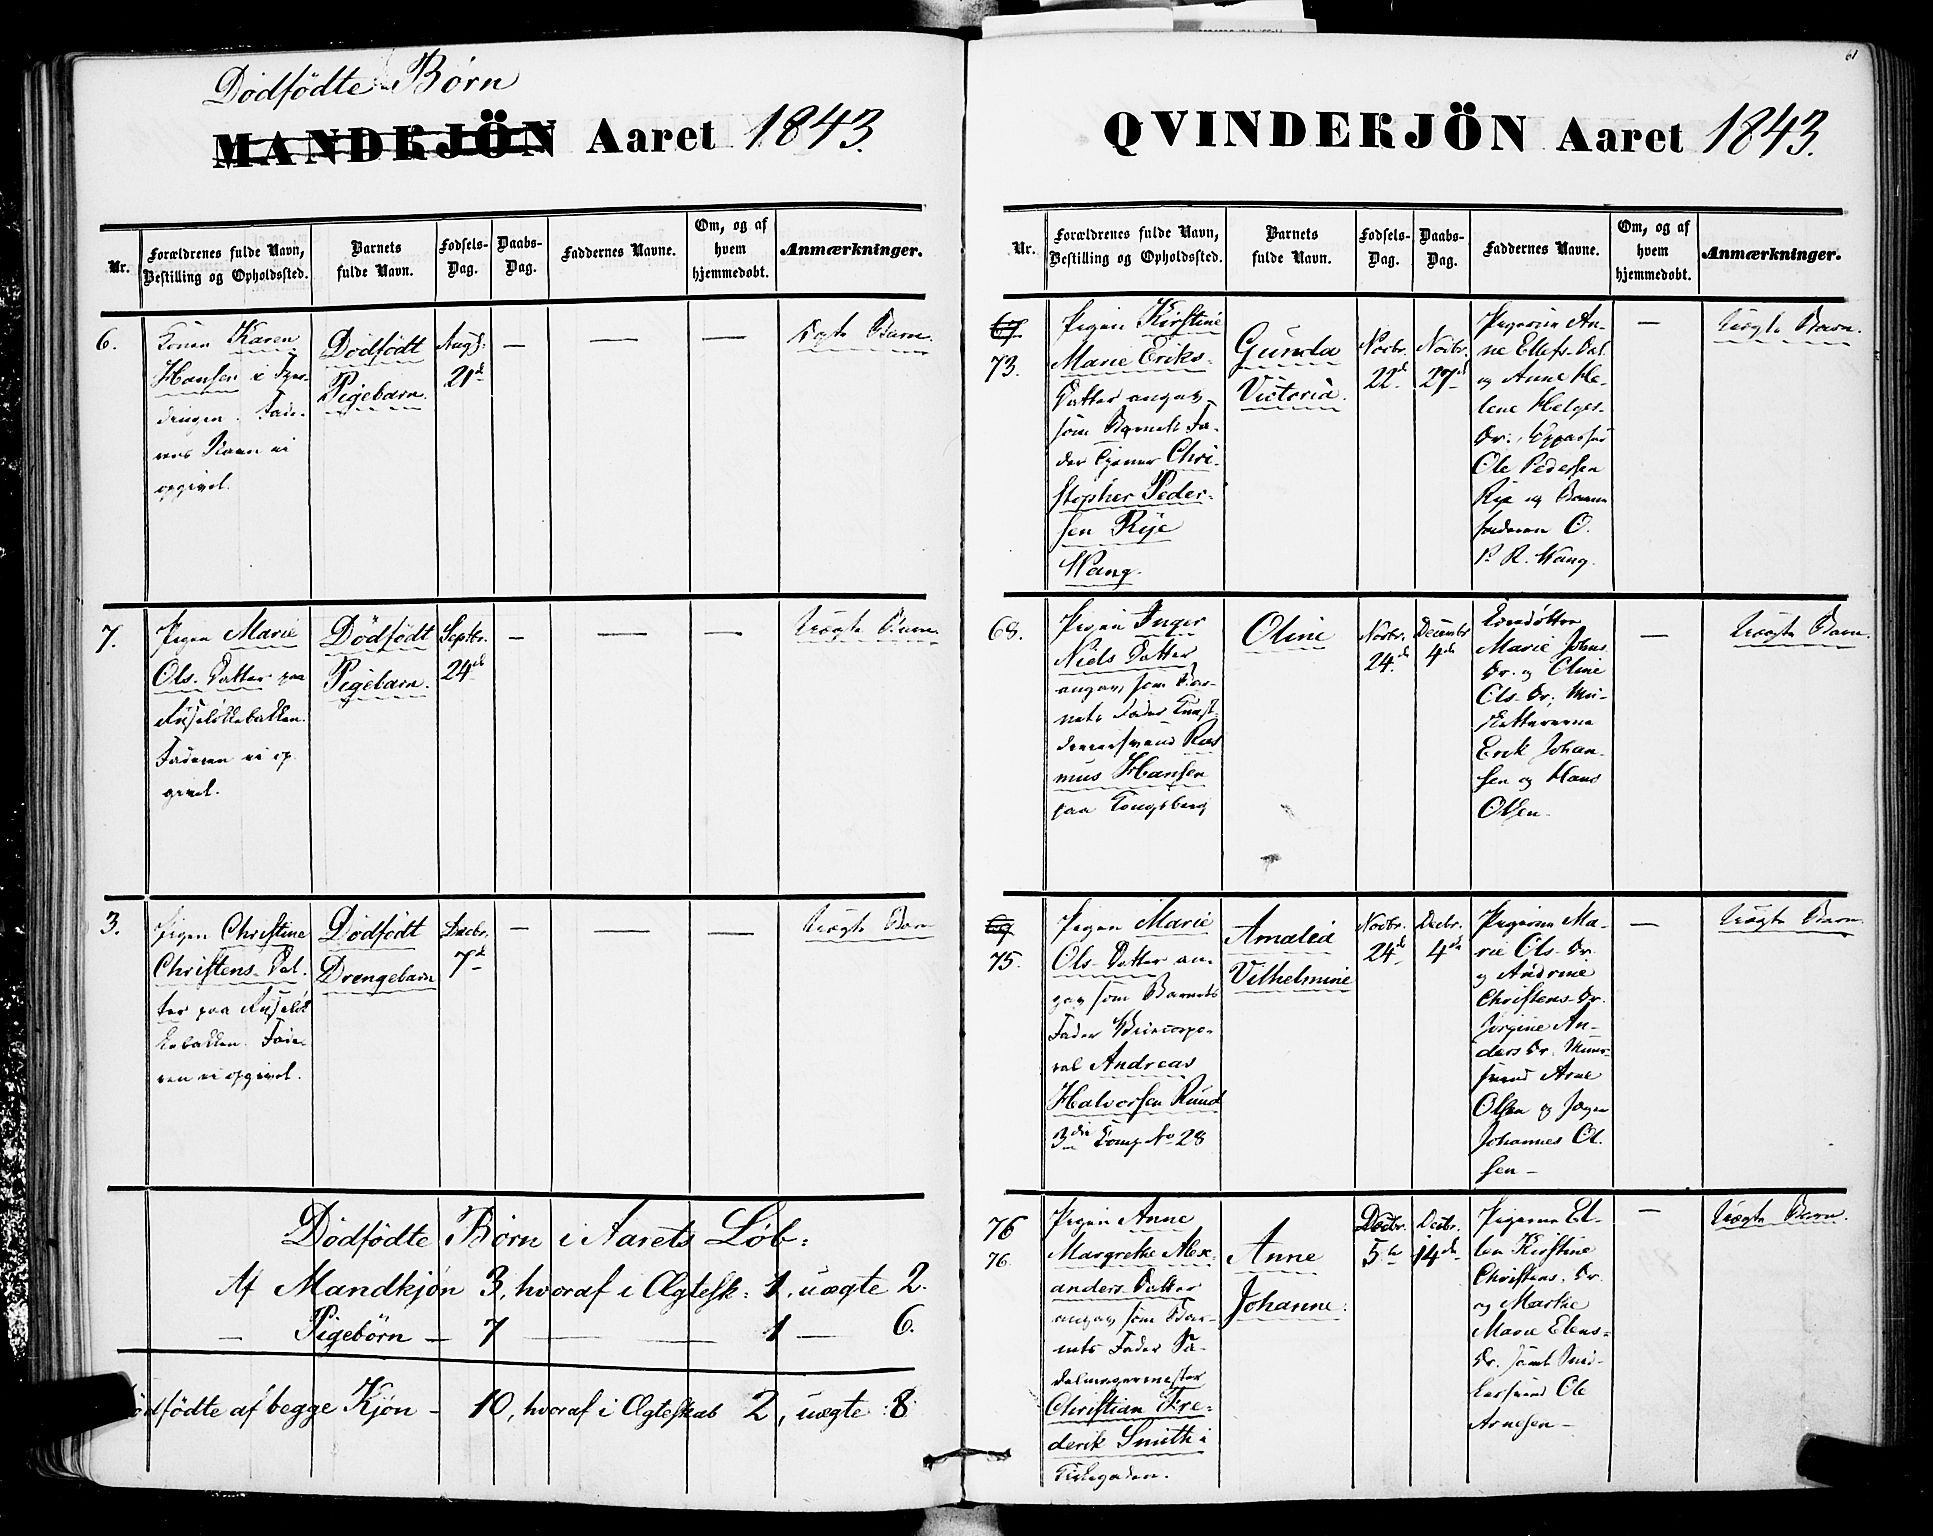 Dödfödte Børn
MANDKJÖN Aaret 1843.
Nr.
Forældrenes fulde Navn,
Bestilling og Opholdssted.
Barnets
fulde Navn.
Fødsels-
Dag.
Daabs-
Dag.
Faddernes Navne.
Om, og af
hvem
hjemmedøbt.
Anmærkninger.
6.
Konen Karen
Hansen i
Fade-
rens Navn ei
opgivet.
Dödfödt
Pigebarn.
Aug.
21d
—
—
—
Ægte Barn
7.
Pigen Marie
Ols. Datter paa
Ruseløkkebakken.
Faderen ei op-
givet.
Dödfödt
Pigebarn.
Septbr.
24d
—
—
—
Uægte Barn
3.
Pigen Christine
Christens-Dat-
ter paa Ruseløk-
kebakken. Fade-
ren ei opgivet.
Dödfödt
Drengebarn
Decbr.
7d
—
—
—
Uægte Barn
Dödfödte Børn i Aarets Løb:
Af Mandkjøn 3, hvoraf i Ægtesk: 1, uægte 2.
— Pigebörn — 7 — 1 — 6.
Dödfödte af begge Kjøn — 10, hvoraf i Ægteskab 2, uægte 8
61
QVINDEKJÖN Aaret 1843.
Nr.
Forældrenes fulde Navn,
Bestilling og Opholdssted.
Barnets
fulde Navn.
Fødsels-
Dag.
Daabs-
Dag.
Faddernes Navne.
Om, og af
hvem
hjemmedøbt.
Anmærkninger.
67
73.
Pigen Kirstine
Marie Eriks-
Datter angav
som Barnets Fa-
der Tjener Chri-
stopher Peder-
sen Rye
Wang.
Gunda
Victoria.
Novbr.
22d
Novbr.
27d
Pigerne An-
ne Ellefs-Dat.
og Anne He-
lene Helges-
Dr.
Ole Pedersen
Rye og Barne
faderen C.
P. R. Wang.
—
Uægte Barn.
68.
Pigen Inger
Niels Datter
angav som Bar-
nets Fader Kunst-
dreiersvend Ras
mus Hansen
paa Kongsberg
Oline
Novbr.
24d
Decembr
4de
Marie Johns
Dr. og Oline
Ols-Dr; Mu-
sketererne
Erik Johan-
sen og Hans
Olsen.
—
Uægte Barn.
69
75.
Pigen Marie
Ols-Datter an-
gav som Barnets
Fader
ral Andreas
Halvorsen Ruud
3die Comp No 28
Amalia
Vilhelmine
Novbr.
24d
Decbr.
4de
Pigerne Ma-
rie Ols-Dr.
og Andrine
Christens-Dr.
Jørgine An-
ders Dr. Murer-
svend Arne
Olsen og
Johannes Ol-
sen —
—
Uægte Barn
76
76.
Pigen Anne
Margrethe Alex-
anders-Datter
angav som Bar-
nets Fader Sa-
delmagermester
Christian Fre-
derik Smith i
Anne
Johanne.
Decbr.
5te
Decbr.
14de
Pigerne El-
len Kirstine
Christens. Dr.
og Marthe
Marie Elens-
Dr. samt Sned-
kersvend Ole
Arnesen —
—
Uægte Barn.